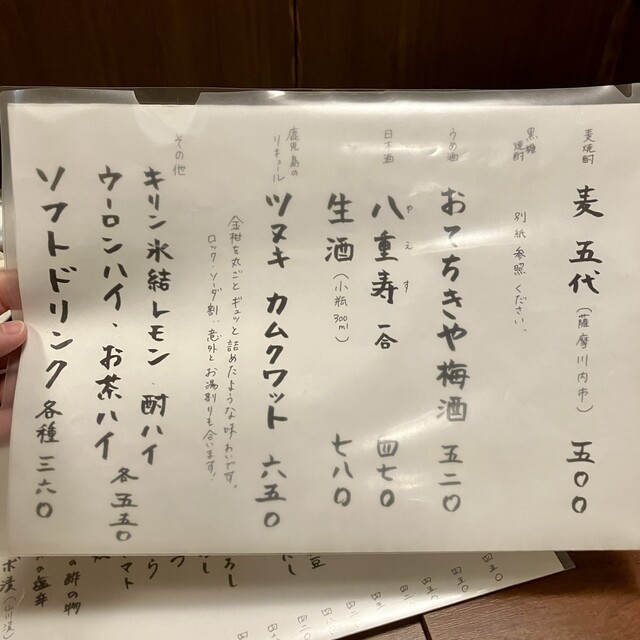 麦焼酎
麦 五代（薩摩川内市） 五〇〇
黒糖焼酎
別紙参照ください。
うめ酒
おてちきや梅酒 五二〇
日本酒
八重寿 一合 四七〇
やえす
生酒（小瓶300ml） 七八〇
鹿児島のリキュール
ツヌキ カムクワット 六五〇
金柑を丸ごとギュッと詰めたような味わいです。
ロック、ソーダ割、意外とお湯割りも合います！
その他
キリン氷結レモン・酎ハイ
ウーロンハイ、お茶ハイ 各五五〇
ソフトドリンク 各種 三六〇